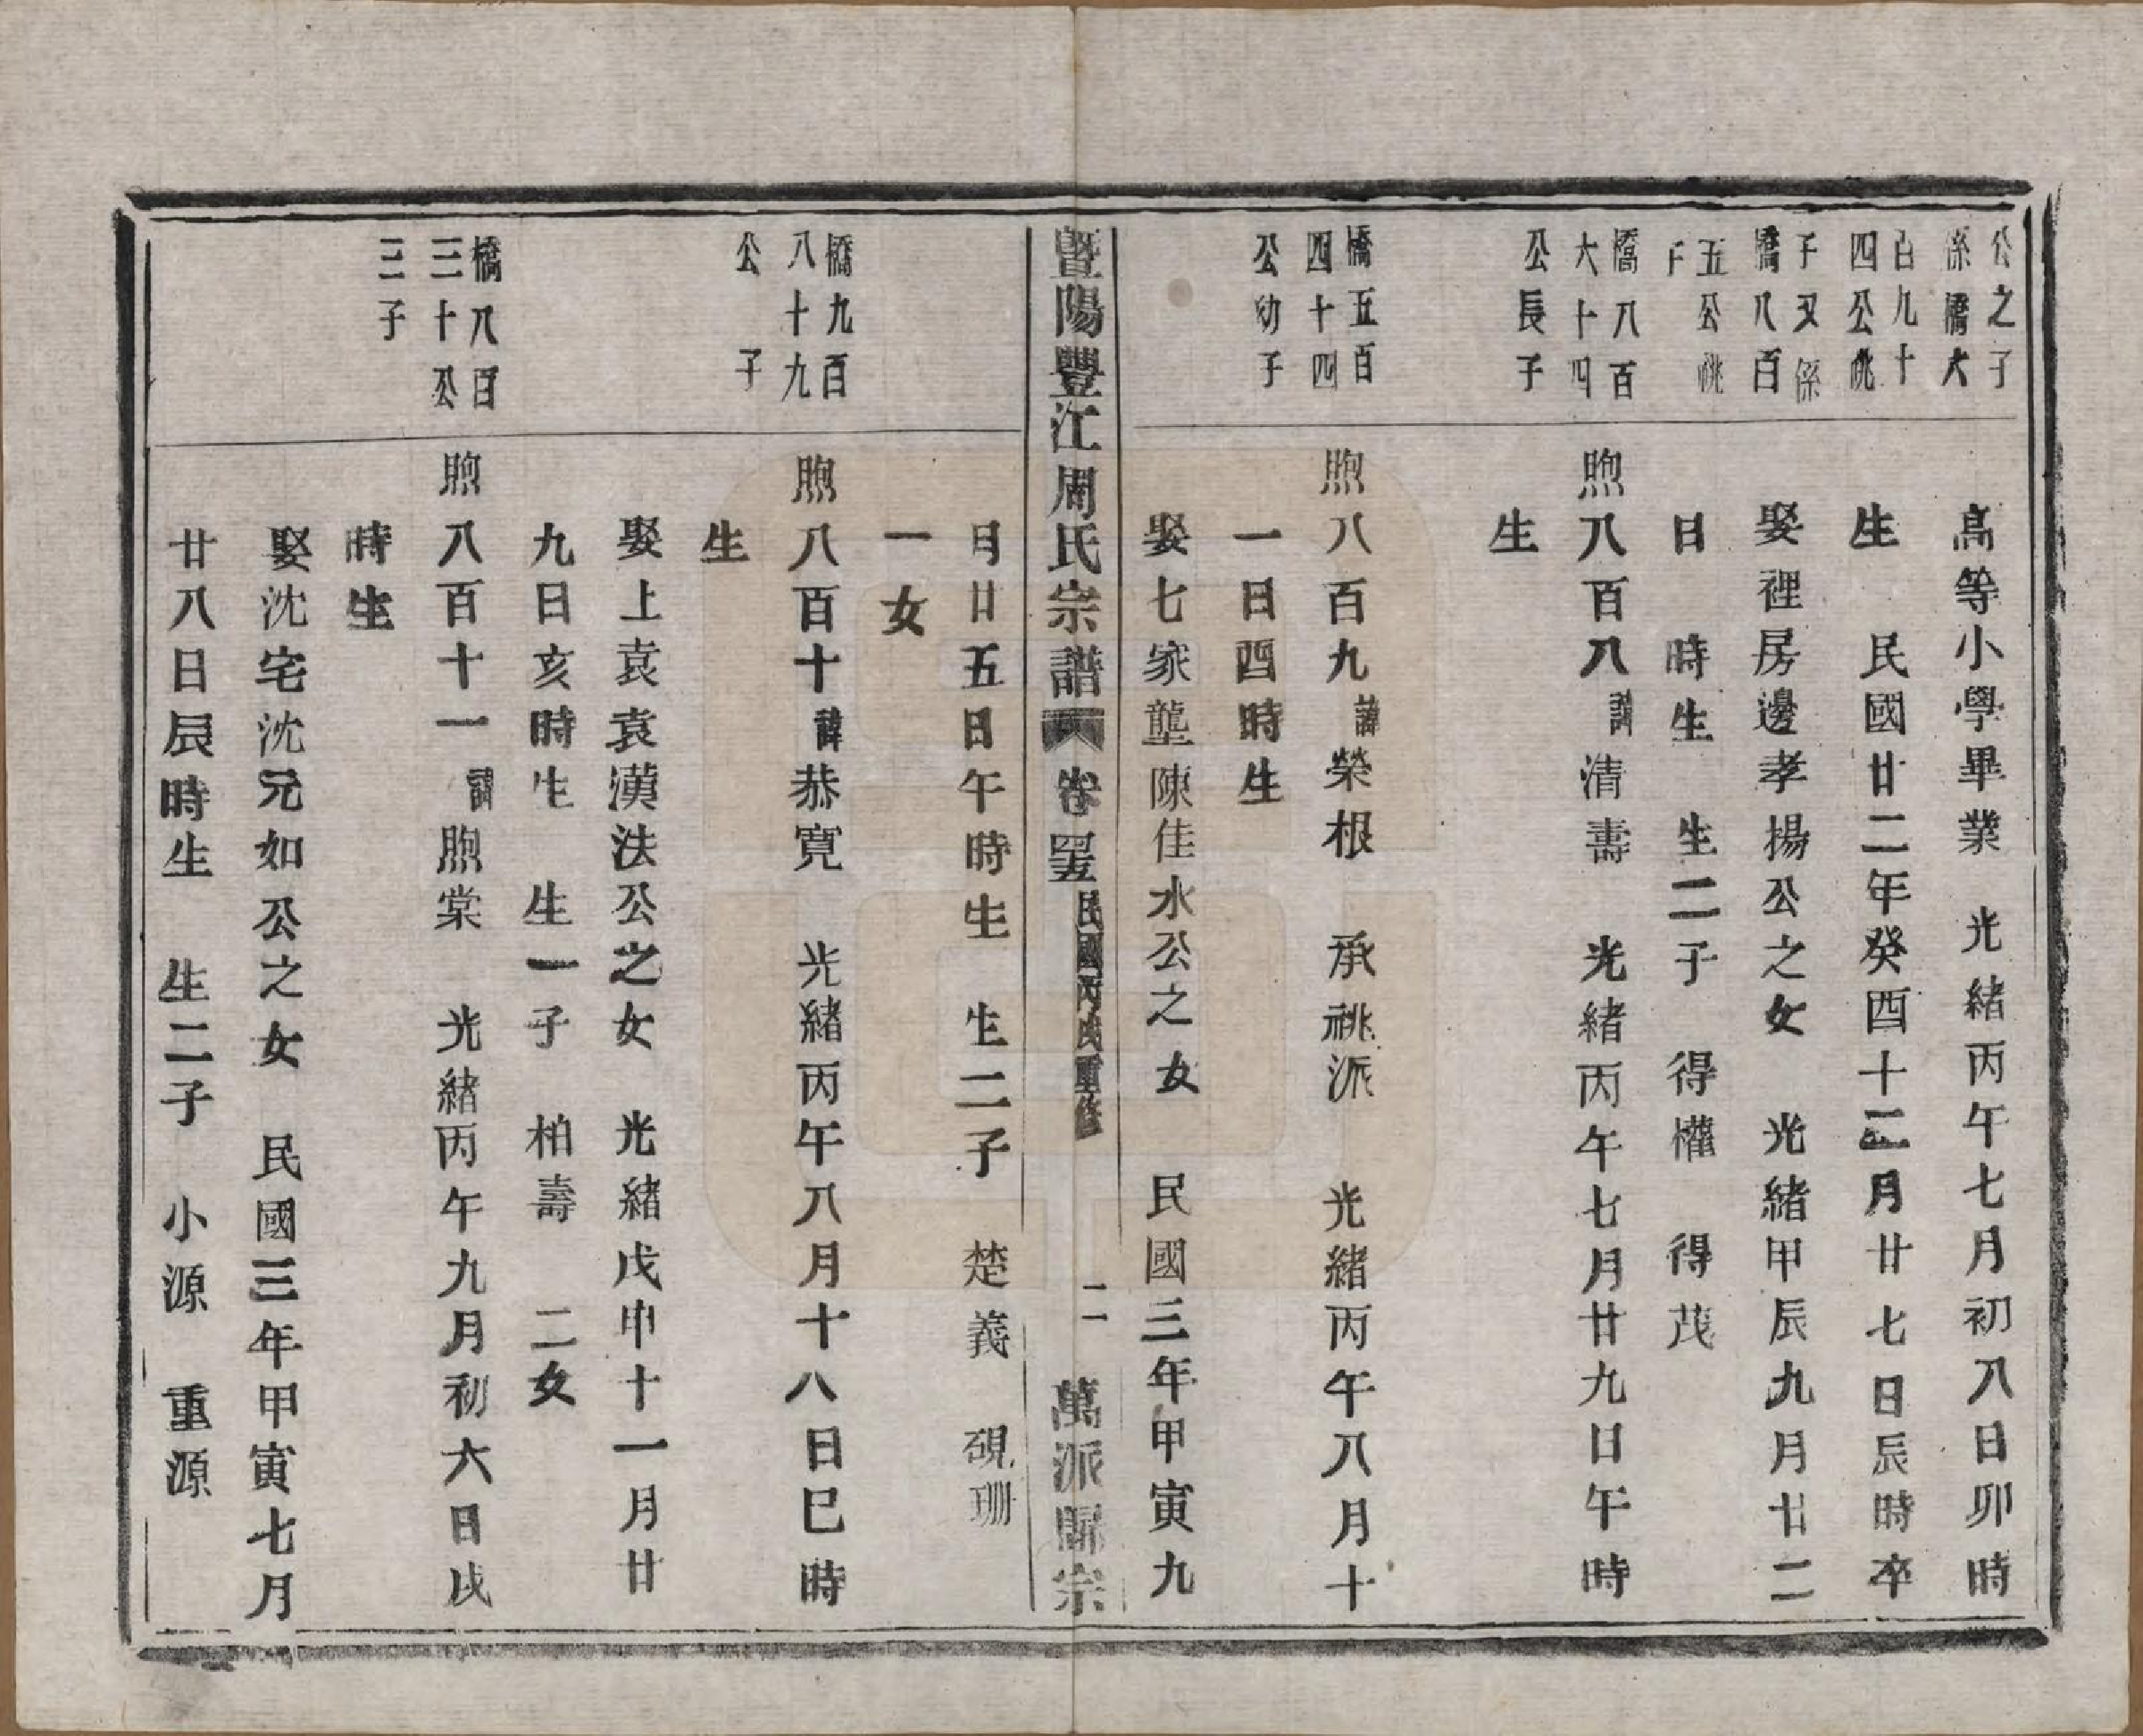 公之子
係橋大
百九十
四公祧
子又係
橋八百
五公祧
子
高等小學畢業　光緒丙午七月初八日卯時
生　民國廿二年癸酉十二月廿七日辰時卒
娶裡房邊孝揚公之女　光緒甲辰九月廿二
日　時生　生二子　得權　得茂
橋八百
六十四
公長子
煦八百八諱清壽　光緒丙午七月廿九日午時
生
橋五百
四十四
公幼子
煦八百九諱榮根　承祧派　光緒丙午八月十
一日酉時生
娶七家蘁陳佳水公之女　民國三年甲寅九
暨陽豐江周氏宗譜　卷罣　民國丙戌重修　二　萬派歸宗
月廿五日午時生　生二子　楚義　硯珊
一女
橋九百
八十九
公　子
煦八百十諱恭寬　光緒丙午八月十八日巳時
生
娶上袁袁漢法公之女　光緒戊申十一月廿
九日亥時生　生一子　柏壽　二女
橋八百
三十公
三子
煦八百十一諱煦棠　光緒丙午九月初六日戌
時生
娶沈宅沈兄如公之女　民國三年甲寅七月
廿八日辰時生　生二子　小源　重源